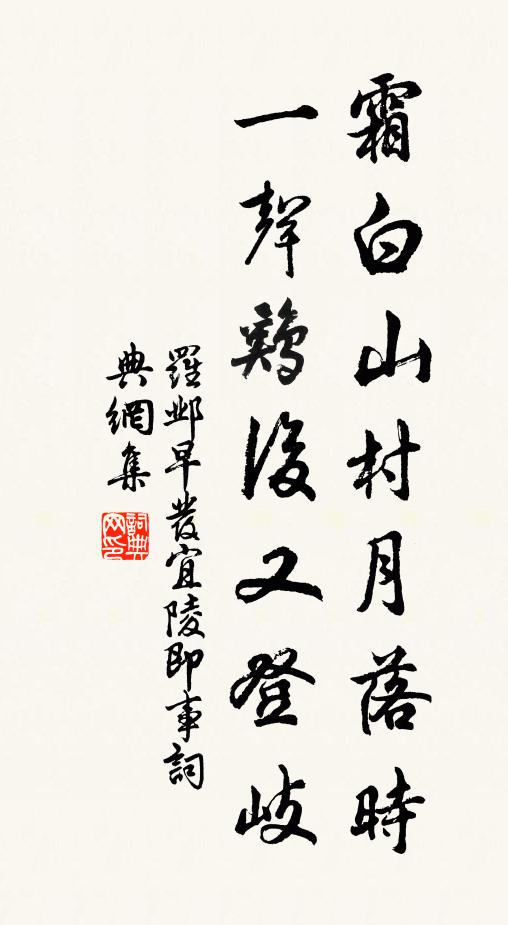 霜白山村月落時
一聲鷄後又登岐
羅邺早發宜陵即事詞
典網集
詞典
网印